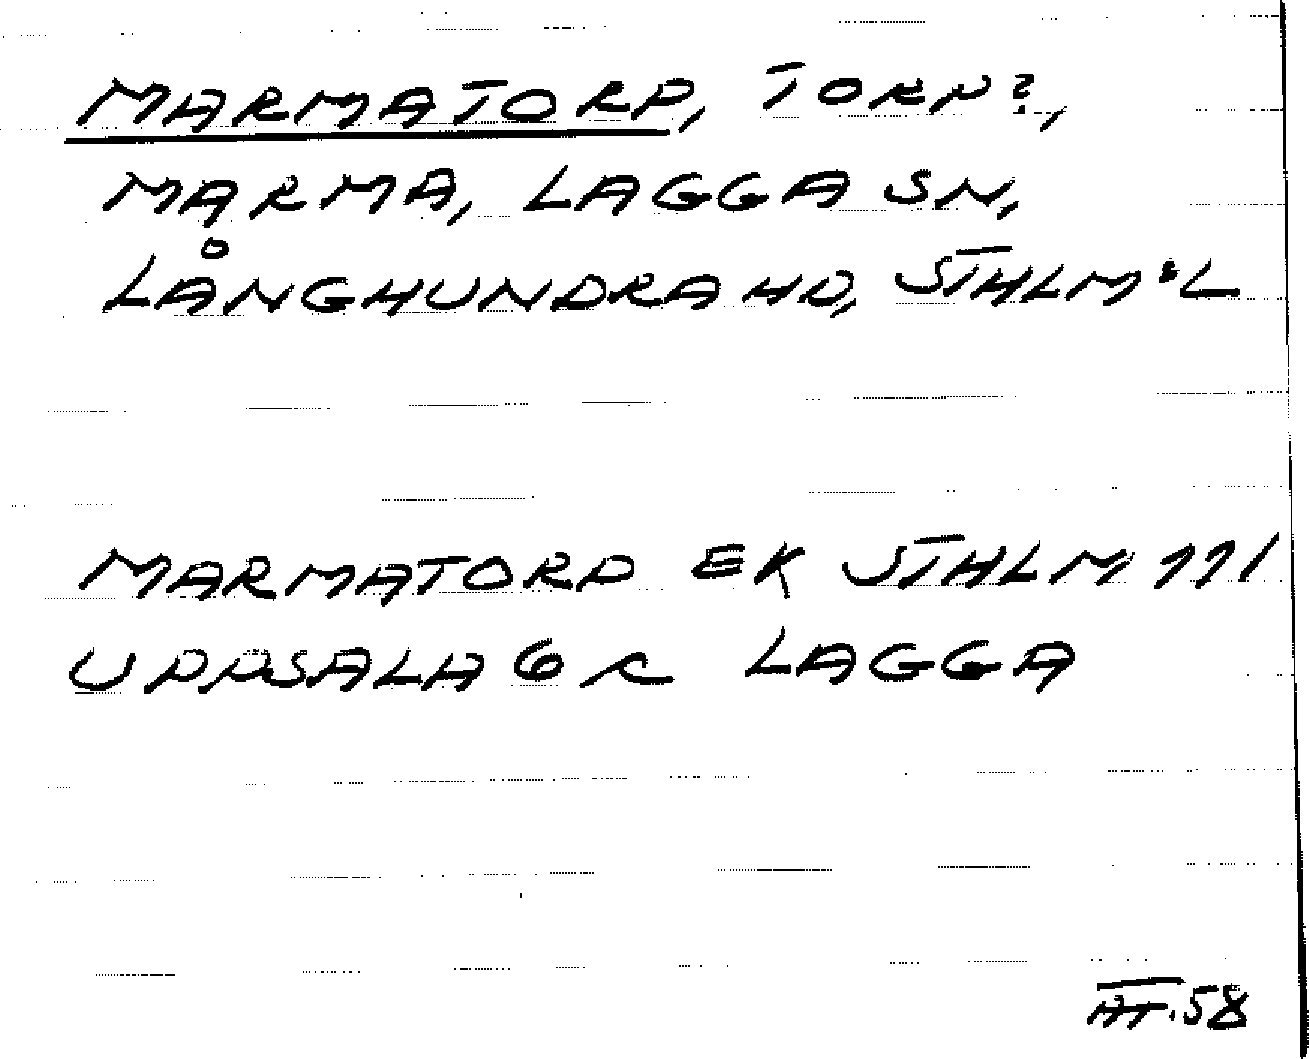 MARMATORP, TORP?,
MARMA, LAGGA SN,
LÅNGHUNDRA HD, STHLM:L
MARMATORP EK STHLM 111
UPPSALA 6 C LAGGA
58